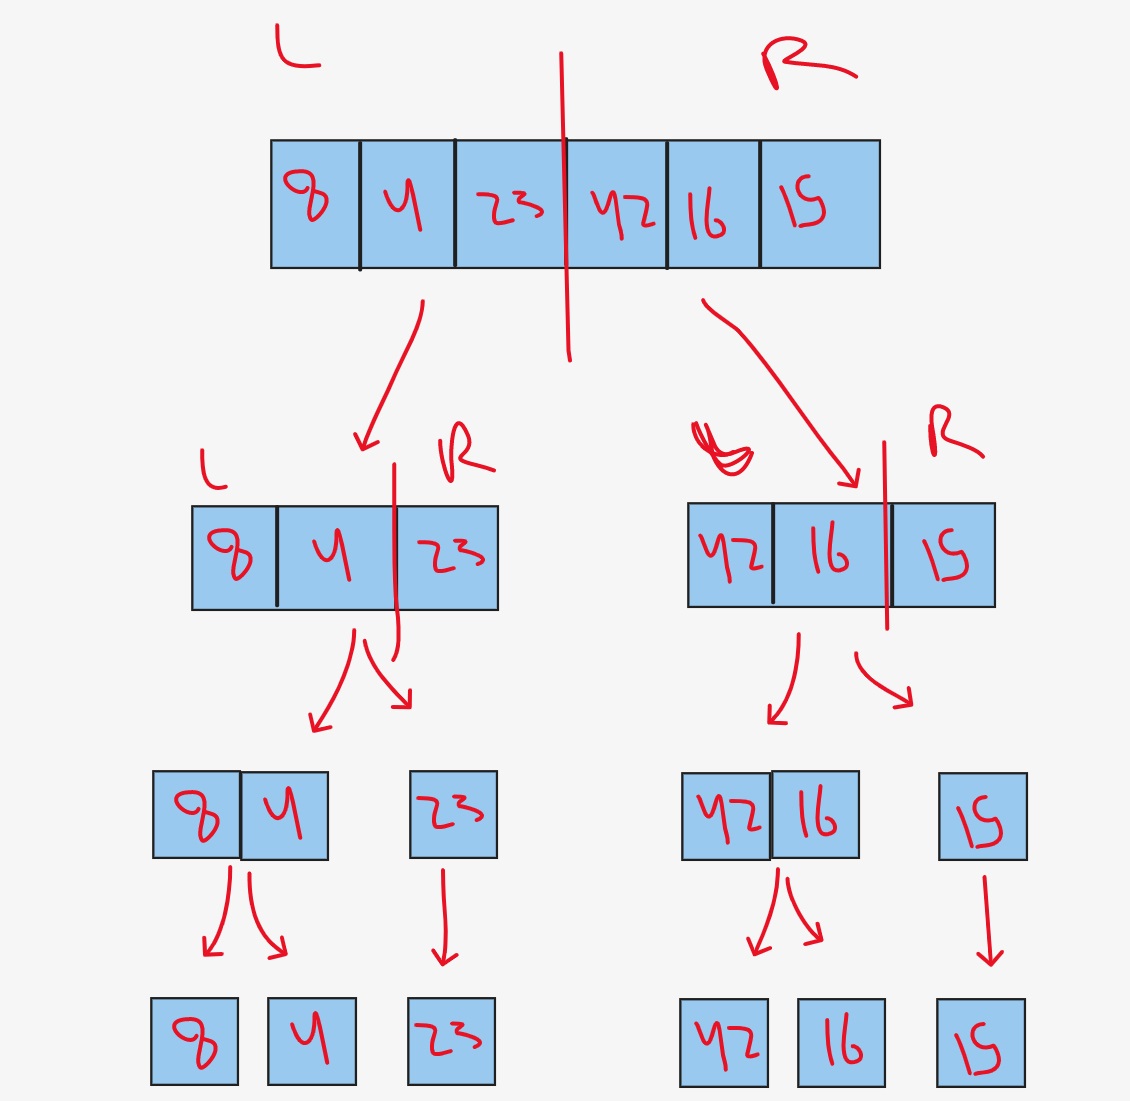 L R
8 4 23 42 16 15
L R R
8 4 23 42 16 15
8 4 23 42 16 15
8 4 23 42 16 15